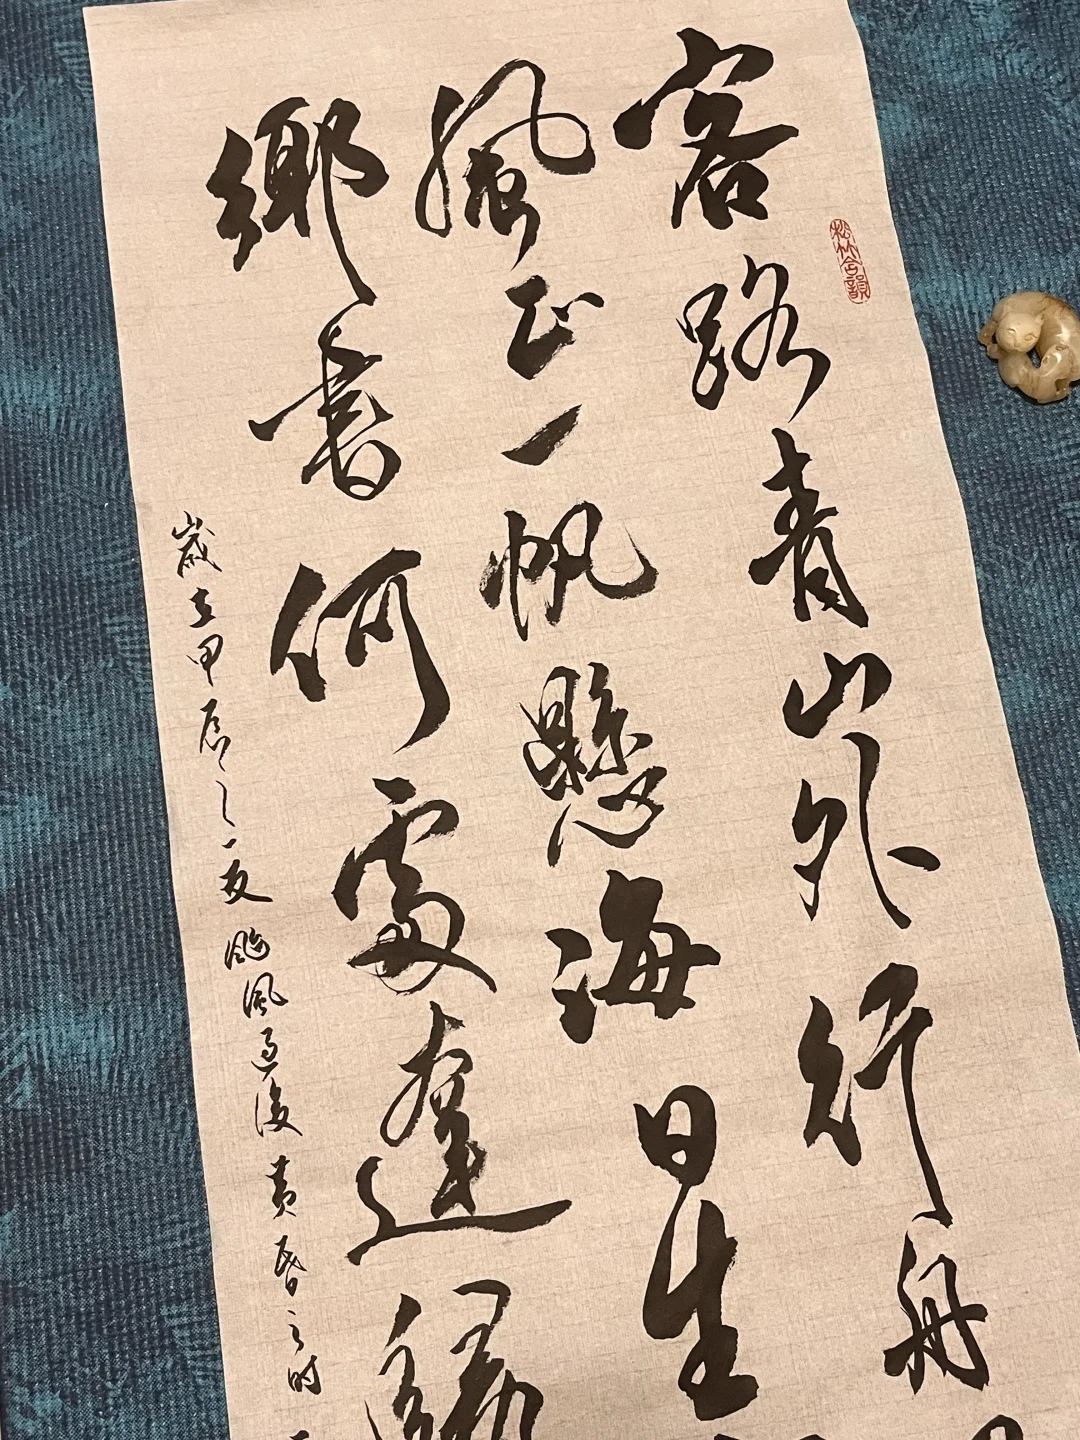 客路青山外行舟
風正一帆懸海日生
鄉書何處達歸
歲在甲辰之夏颱風過後黃昏之時
松竹含韻